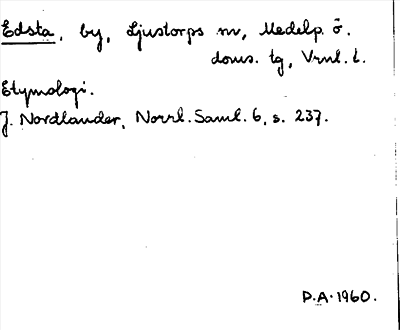 Edsta, by, Ljustorps sn, Medelp. ö.
doms. tg, Vrnl. l.
Etymologi.
J. Nordlander, Norrl. Saml. 6, s. 237.
P.A. 1960.